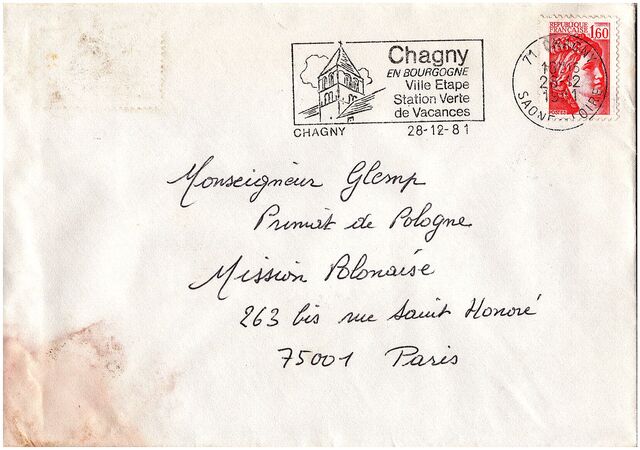 Chagny
EN BOURGOGNE
Ville Etape
Station Verte
de Vacances
CHAGNY 28-12-81
REPUBLIQUE
FRANÇAISE 1,60
71 CHAGNY
SAONE LOIRE
Monseigneur Glemp
Primat de Pologne
Mission Polonaise
263 bis rue Saint Honoré
75001 Paris